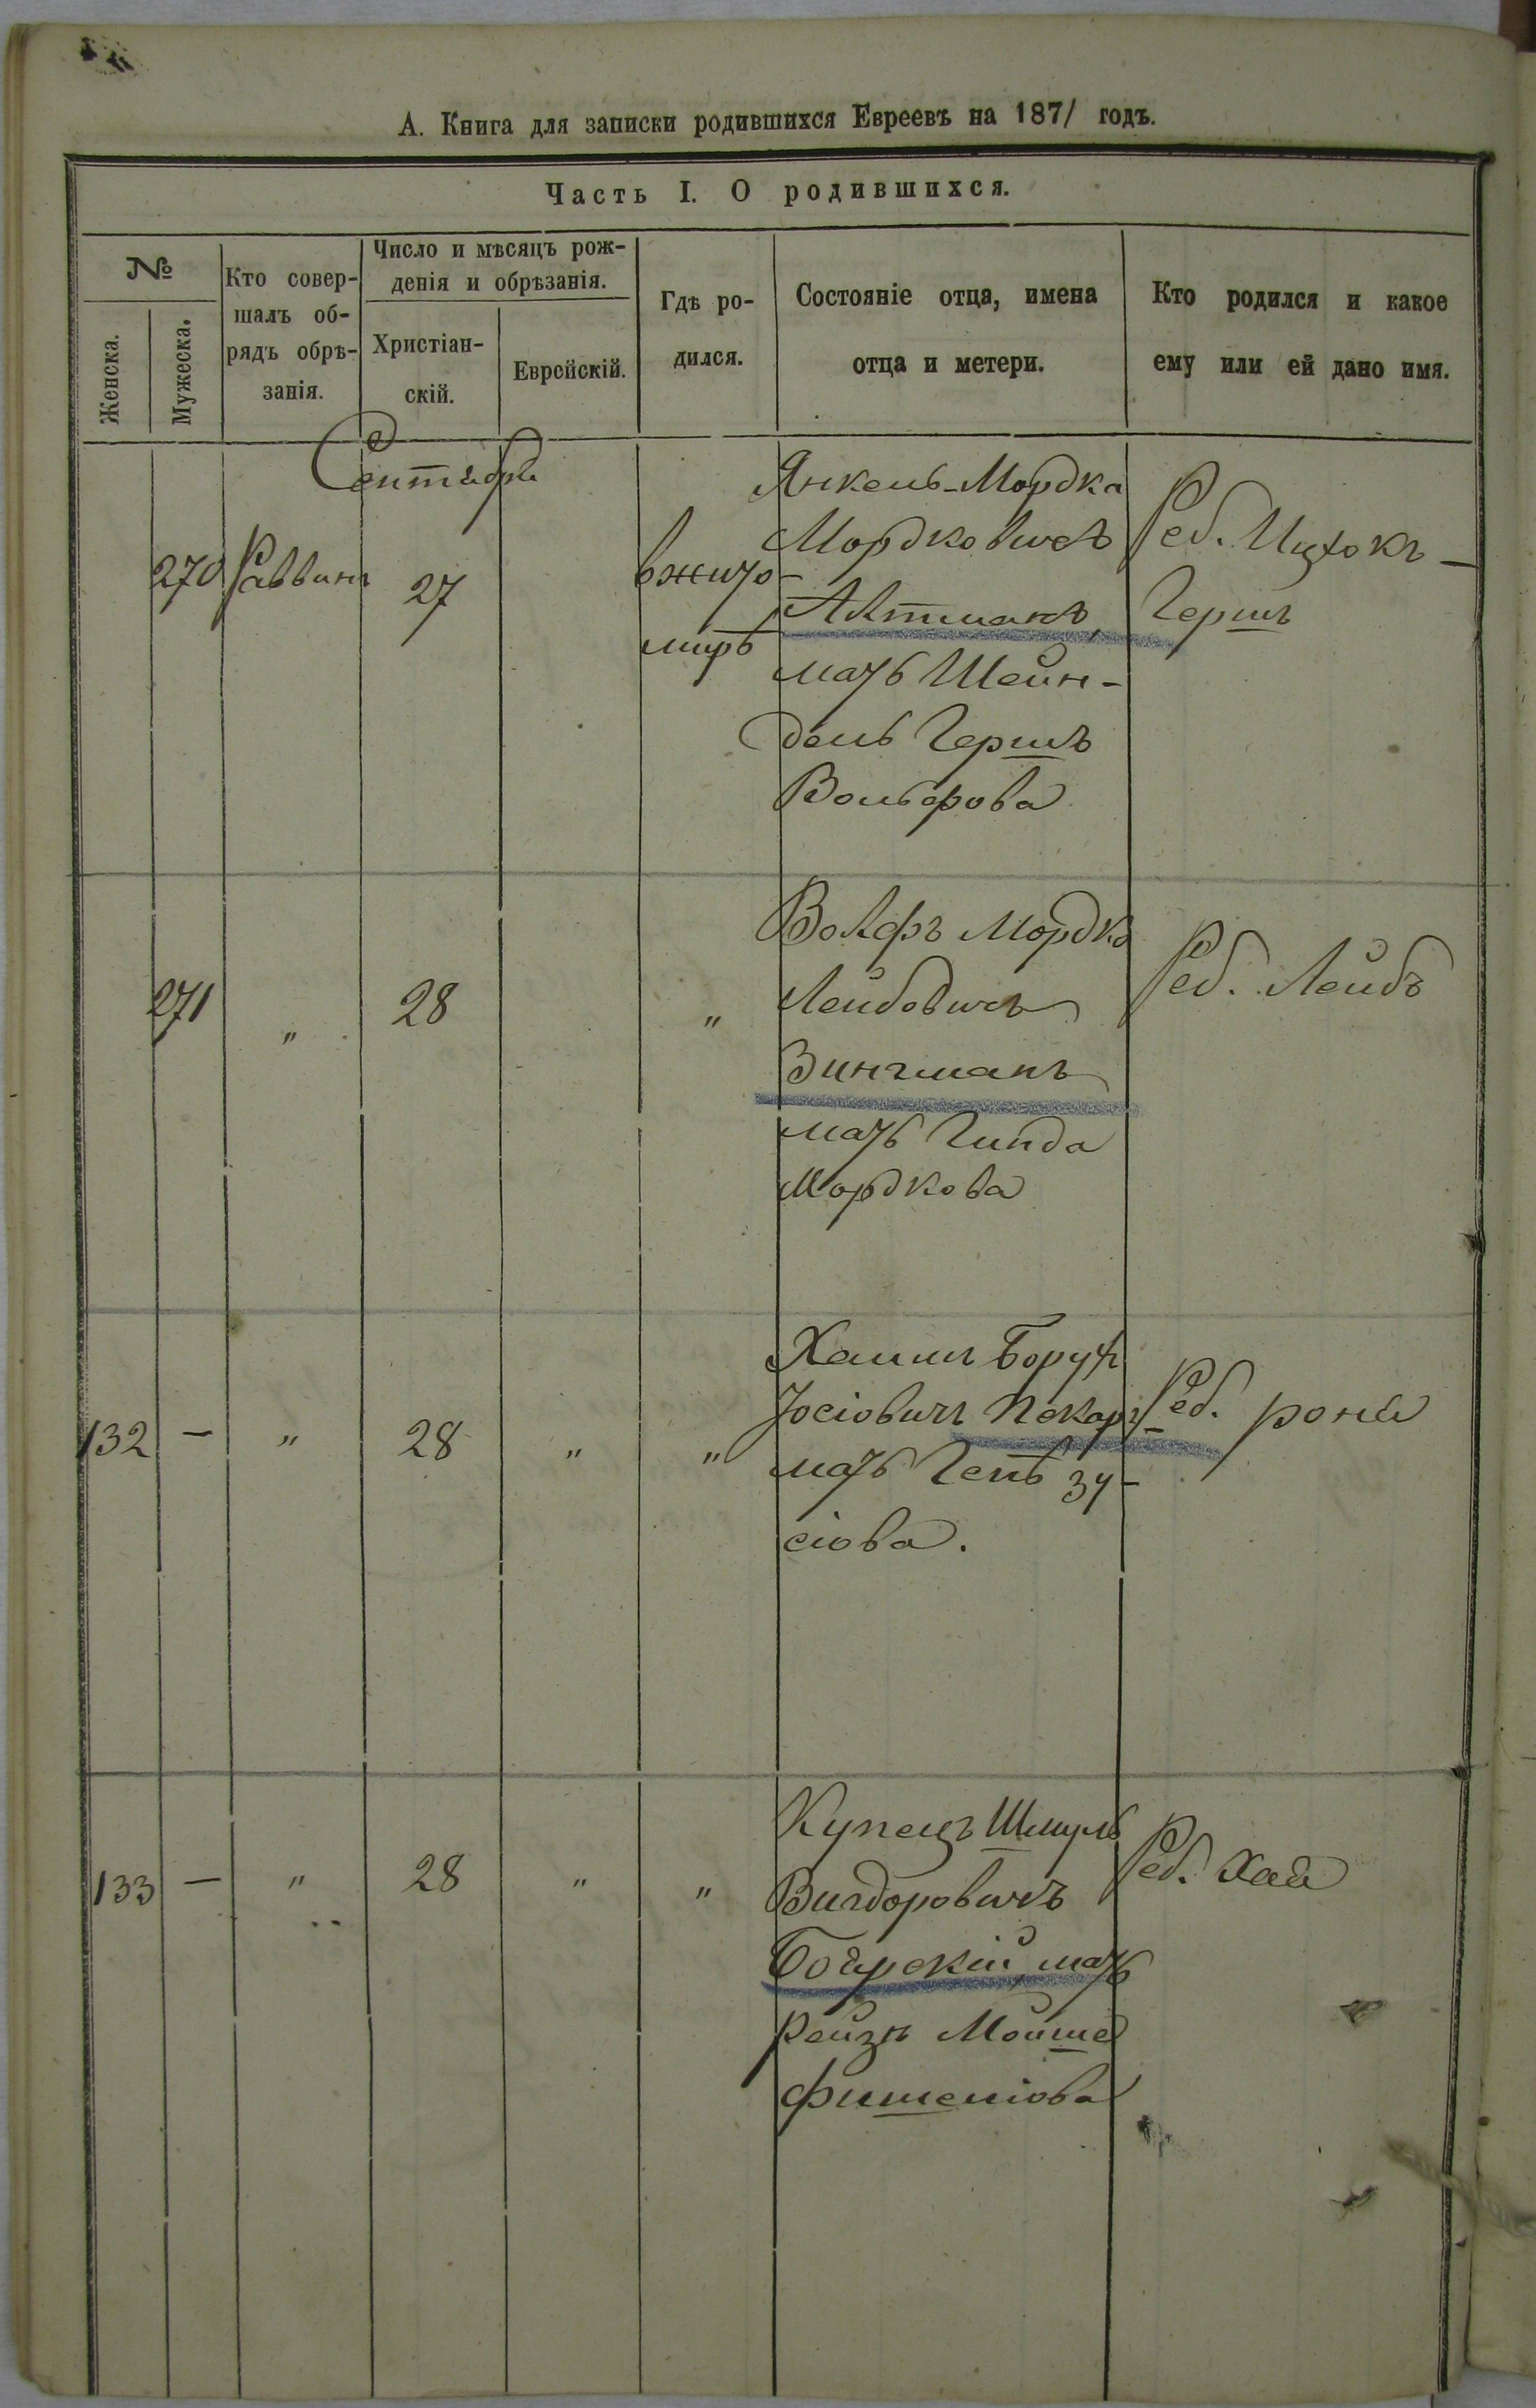 А. Книга для записки родившихся Евреевъ на 1871 годъ.
Часть I. О родившихся.
№
Женска.
Мужеска.
Кто совер-
шалъ об-
рядъ обрѣ-
занія.
Число и мѣсяцъ рож-
денія и обрѣзанія.
Христіан-
скій.
Еврейскій.
Гдѣ ро-
дился.
Состояніе отца, имена
отца и метери.
Кто родился и какое
ему или ей дано имя.
Сентября
270 Раввинъ 27
в Жито-
мирѣ
Янкель-Мордка
Мордковичъ
Альтманъ,
мать Шейн-
дель Гершъ
Вольфова
Реб. Ицхокъ-
Гершъ
271 „ 28 „
Волфъ Мордко
Лейбовичъ
Зингманъ
мать Гинда
Мордкова
Реб. Лейбъ
132 — „ 28 „ „
Хаимъ Борухъ
Іосіовичъ Пекаръ
мать Геня Зу-
сіова.
Реб. роня
133 — „ 28 „ „
Купецъ Шмуль
Вигдоровичъ
Боярскій, мать
Рейзя Мойше
Фишеліова
Реб. Хая